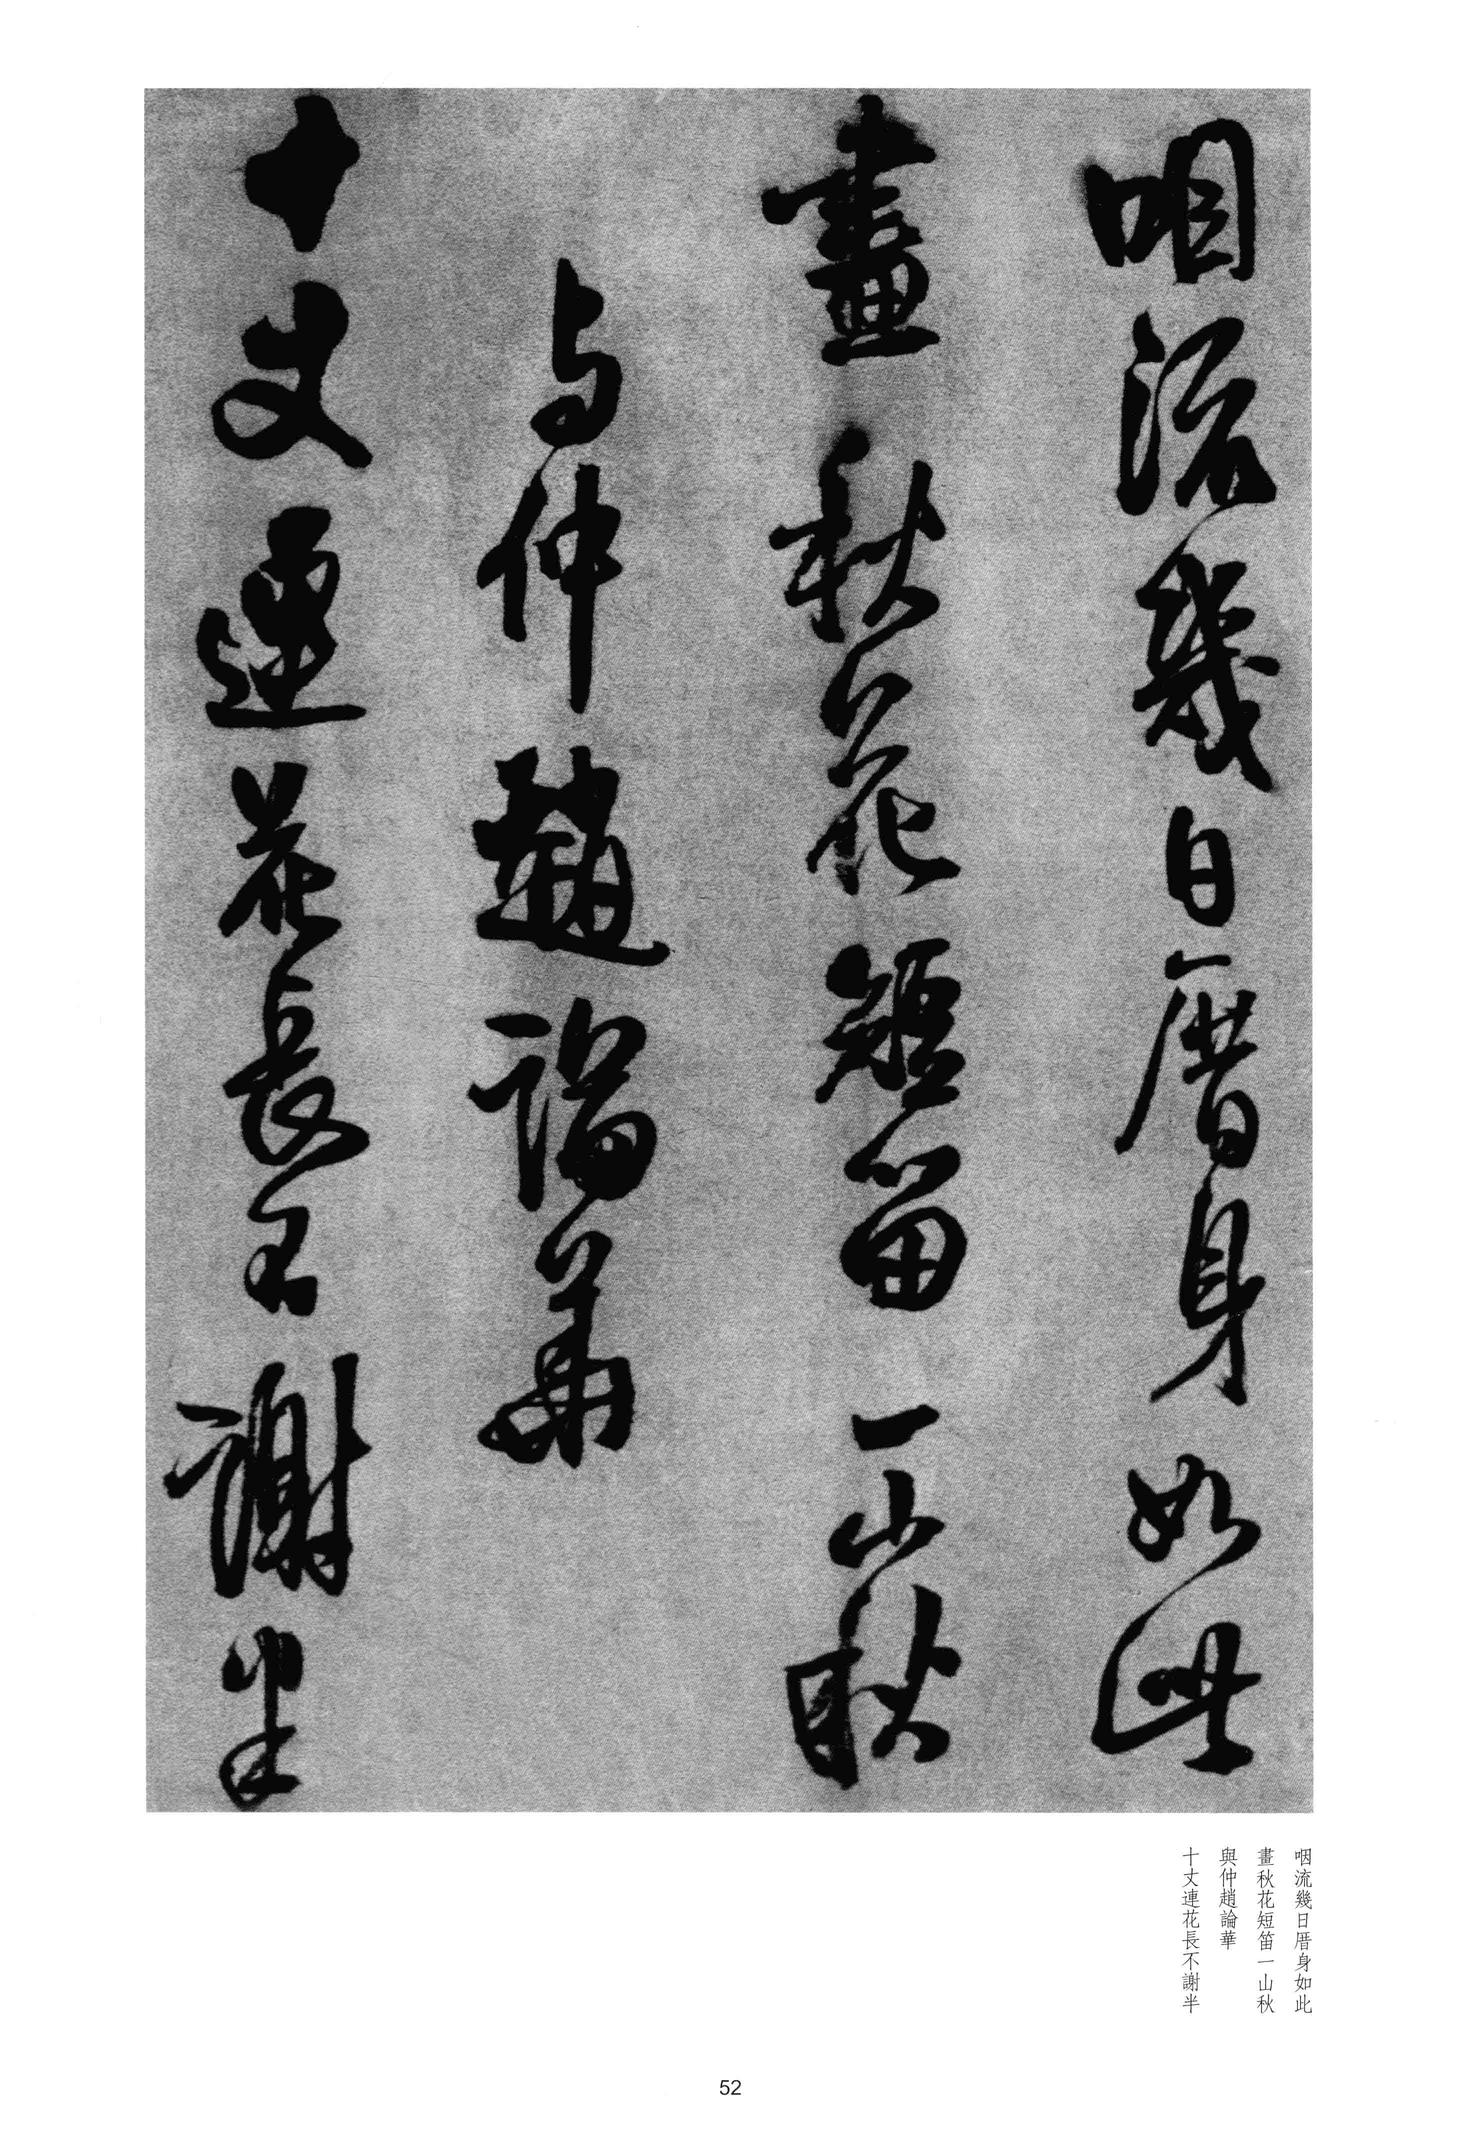 咽流幾日厝身如此
畫秋花短笛一山秋
与仲趙論華
十丈連花長不謝半
咽流幾日厝身如此
畫秋花短笛一山秋
與仲趙論華
十丈連花長不謝半
52